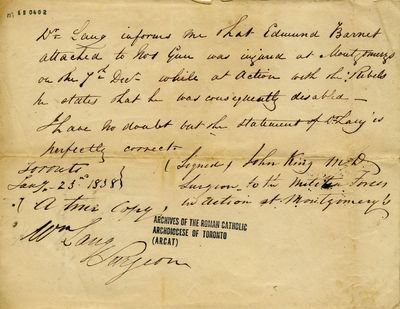 M AB 0402
Dr. Lang informs me that Edmund Barnet
attached to No 1 Gun was injured at Montgomerys
on the 7th Decr. while at Action with the Rebels
he states that he was consequently disabled —
I have no doubt but the statement of is
perfectly correct
Toronto
Jany. 23d 1838
(Signed, John King M.D.
Surgeon to the Militia Forces
in Action at Montgomerys
(A true Copy,
Wm Lang
Surgeon
ARCHIVES OF THE ROMAN CATHOLIC
ARCHDIOCESE OF TORONTO
(ARCAT)